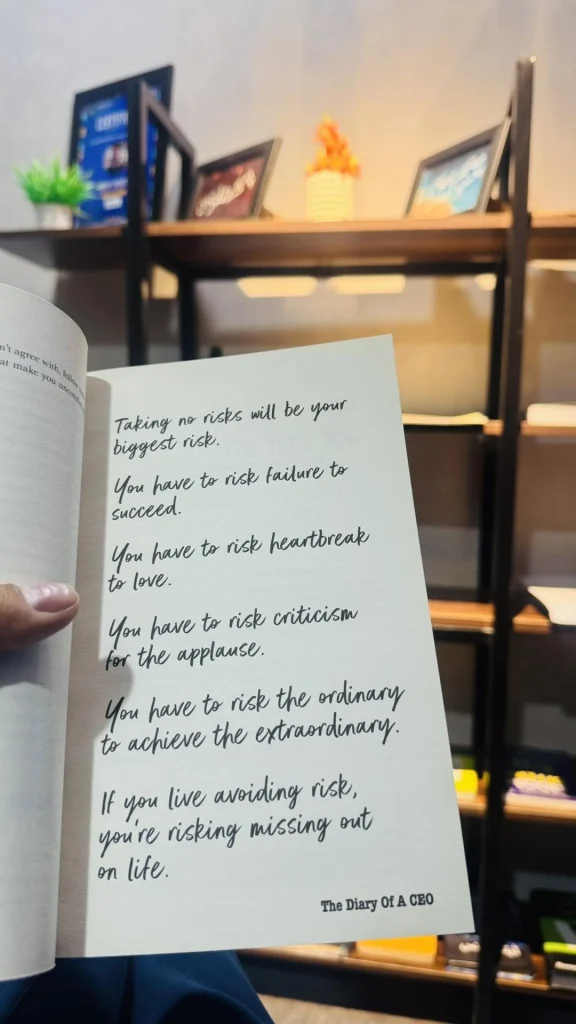 n't agree with, follow
at make you
Taking no risks will be your
biggest risk.
You have to risk failure to
succeed.
You have to risk heartbreak
to love.
You have to risk criticism
for the applause.
You have to risk the ordinary
to achieve the extraordinary.
If you live avoiding risk,
you're risking missing out
on life.
The Diary Of A CEO